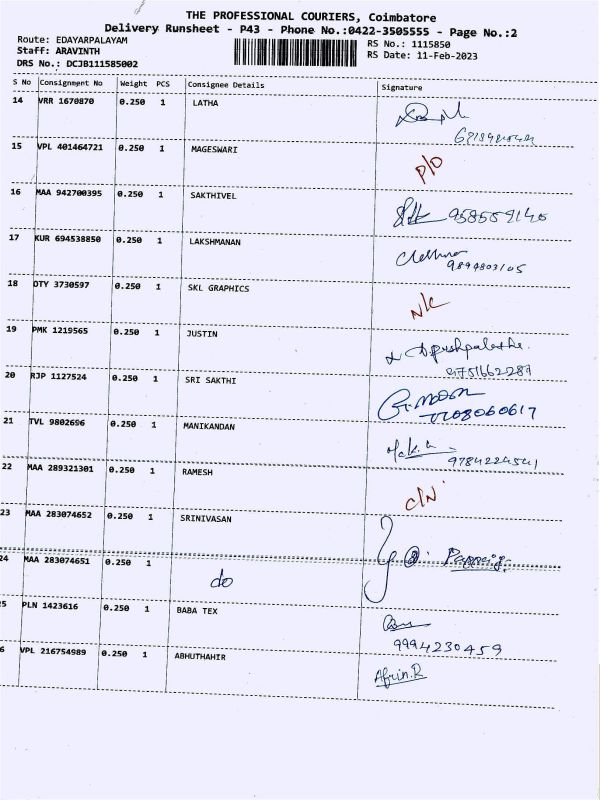 THE PROFESSIONAL COURIERS, Coimbatore
Delivery Runsheet - P43 - Phone No.:0422-3505555 - Page No.:2
Route: EDAYARPALAYAM RS No.: 1115850
Staff: ARAVINTH RS Date: 11-Feb-2023
DRS No.: DCJB111585002
S No Consignment No Weight PCS Consignee Details Signature
14 VRR 1670870 0.250 1 LATHA
15 VPL 401464721 0.250 1 MAGESWARI P/O
16 MAA 942700395 0.250 1 SAKTHIVEL 958559140
17 KUR 694538850 0.250 1 LAKSHMANAN
9894803105
18 OTY 3730597 0.250 1 SKL GRAPHICS N/C
19 PMK 1219565 0.250 1 JUSTIN
9751662287
20 RJP 1127524 0.250 1 SRI SAKTHI
7708060617
21 TVL 9802696 0.250 1 MANIKANDAN
9784224541
22 MAA 289321301 0.250 1 RAMESH C/N
23 MAA 283074652 0.250 1 SRINIVASAN
24 MAA 283074651 0.250 1 do
25 PLN 1423616 0.250 1 BABA TEX
9994230459
6 VPL 216754989 0.250 1 ABHUTHAHIR Afrin.R